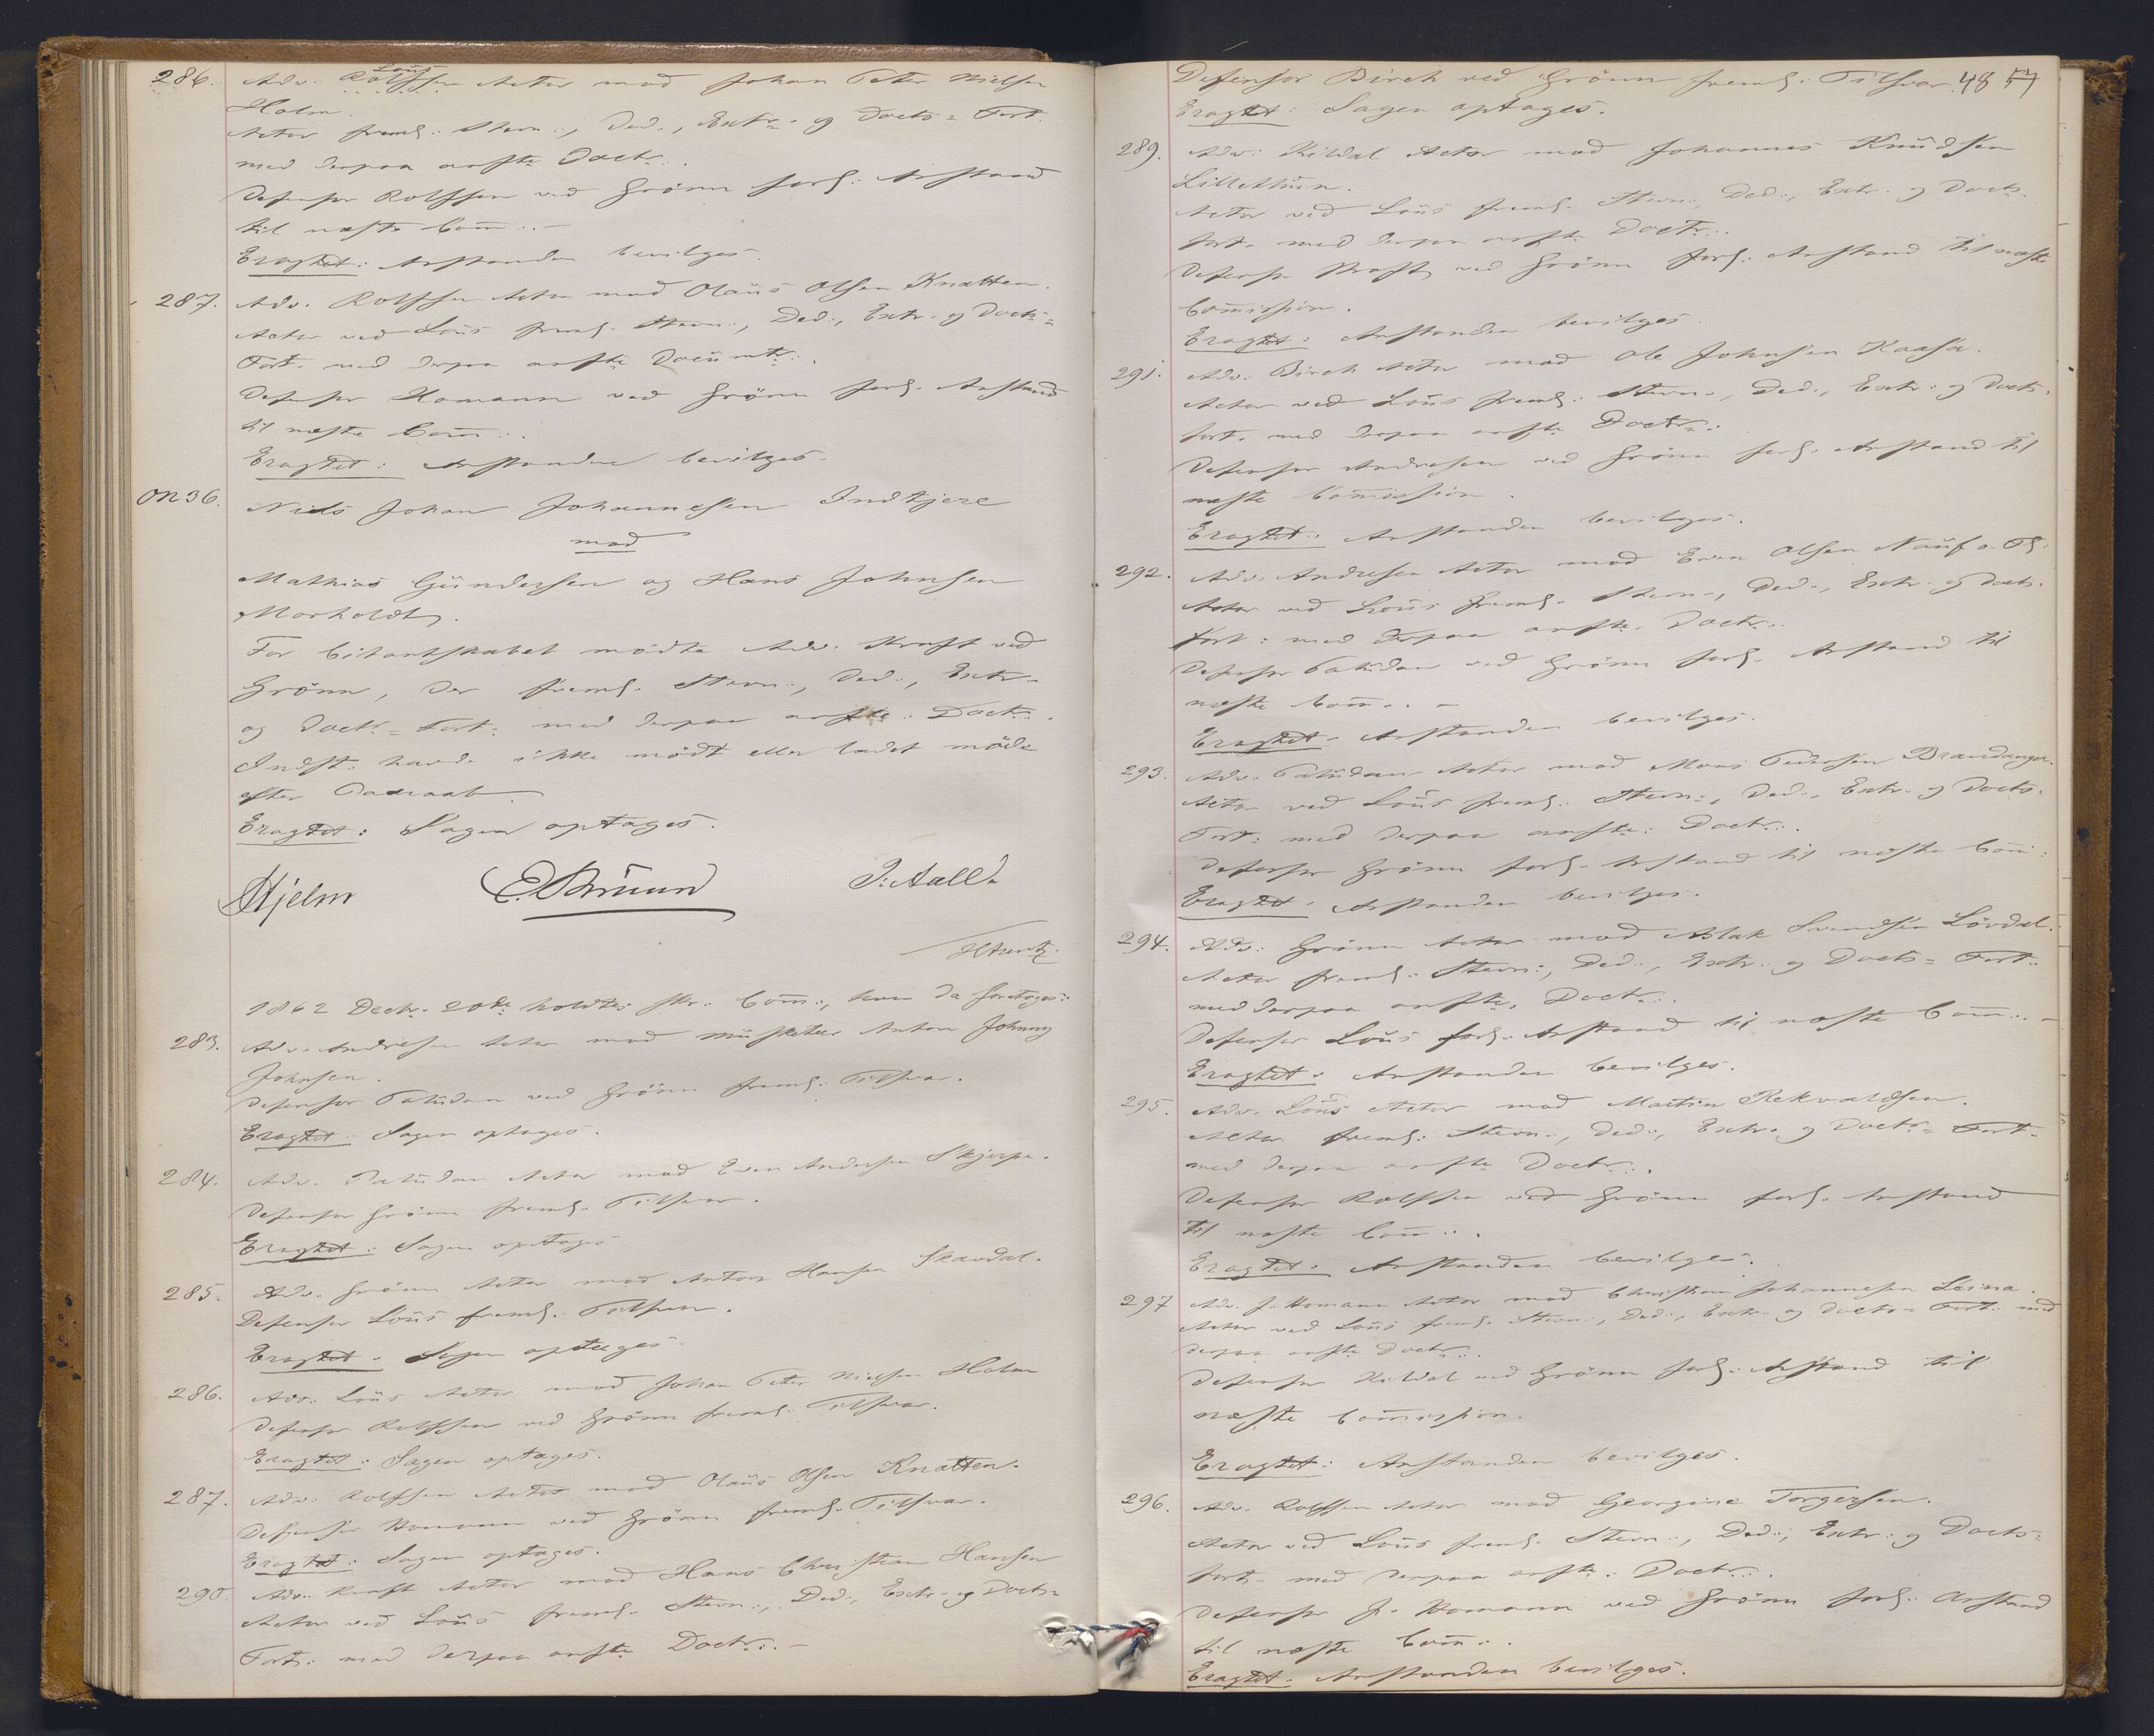 286. Adv. Rolfsen Loüs Actor mod Johan Peter Nielsen
Holm.
Actor freml: Stevn:, Ded., Extr. og Docts= Fort.
med derpaa anfte Doctr:.
Defensor Rolfsen ved Grönn forl: Anstand
til næste Com̄:. –
Eragtet: Anstanden bevilges.
287. Adv. Rolfsen Actor mod Olaüs Olsen Knatten.
Actor ved Loüs freml. Stevn:, Ded., Extr. og Docts=
Fort. med derpaa anfte Documtr:.
Defensor Homann ved Grönn forl. Anstand
til næste Com̄:.
Eragtet: Anstanden bevilges.
No 36. Niels Johan Johannesen Indkjere
mod
Mathias Gündersen og Hans Johnsen
Morholdt.
For Citantskabet mödte Adv. Kraft ved
Grönn, der freml. Stevn:, Ded:, Extr=
og Docts= Fort: med derpaa anfte: Doct:.
Indst: havde ikke mödt eller ladet möde
efter Paaraab.
Eragtet: Sagen optages.
Hjelm E. Bruun J: Aall.
H Arentz.
1862 Decbr. 20de holdtes ske: Com̄:, hvor da foretoges:
283. Adv. Andresen Actor mod Müsketeer Anton Johnny
Johnsen.
Defensor Palüdan ved Grönn freml: Tilsvar.
Eragtet: Sagen optages.
284. Adv. Palüdan Actor mod Even Andersen Skjerpe.
Defensor Grönn freml. Tilsvar.
Eragtet: Sagen optages
285. Adv. Grönn Actor mod Anton Hansen Skavdal.
Defensor Loüs freml: Tilsvar.
Eragtet: Sagen optages.
286. Adv: Loüs Actor mod Johan Peter Nielsen Holm
Defensor Rolfsen ved Grönn freml. Tilsvar.
Eragtet: Sagen optages.
287. Adv: Rolfsen Actor mod Olaüs Olsen Knatten.
Defensor Homann ved Grönn freml. Tilsvar.
Eragtet: Sagen optages.
290. Adv. Kraft Actor mod Hans Christian Hansen
Actor ved Loüs freml. Stevn:, Ded:, Extr. og Docts=
Fort: med derpaa anfte Doctr:. –
Defensor Birch ved Grönn freml: Tilsvar. 48 57
Eragtet: Sagen optages.
289. Adv: Kildal Actor mod Johannes Knüdsen
Lillethün.
Actor ved Loüs freml. Stevn:, Ded:, Extr. og Docts.
fort. med derpaa anfte Doctr:.
Defensor Kraft ved Grönn forl: Anstand til næste
Com̄ission.
Eragtet: Anstanden bevilges.
291. Adv. Birch Actor mod Ole Johnsen Kaasa.
Actor ved Loüs freml: Stevn:, Ded., Extr: og Docts.
fort. med derpaa anfte Doctr:.
Defensor Andresen ved Grönn forl. Anstand til
næste Com̄ission.
Eragtet: Anstanden bevilges.
292. Adv. Andresen Actor mod Even Olsen Nauf o. Fl:
Actor ved Loüs freml. Stevn:, Ded., Extr. og Docts.
Fort: med derpaa anfte. Doctr:.
Defensor Palüdan ved Grönn forl. Anstand til
næste Com̄:. –
Eragtet: Anstanden bevilges.
293. Adv. Palüdan Actor mod Mons Pedersen Brandanger.
Actor ved Loüs freml: Stevn:, Ded., Extr. og Docts.
Fort: med derpaa anfte: Doctr:.
Defensor Grönn forl. Anstand til næste Com̄:
Eragtet: Anstanden bevilges.
294. Adv: Grönn Actor mod Aslak Svendsen Lövdal:
Actor freml: Stevn:, Ded:, Extr: og Docts= Fort:
med derpaa anfte. Doctr:.
Defensor Loüs forl. Anstand til næste Com̄:. –
Eragtet: Anstanden bevilges.
295. Adv. Loüs Actor mod Martin Rekvaldsen.
Actor freml: Stevn., Ded:, Extr. og Docts= Fort.
med derpaa anfte Doctr:.
Defensor Rolfsen ved Grönn forl. Anstand
til næste Com̄:.
Eragtet: Anstanden bevilges.
297 Adv. J. Homann Actor mod Christian Johannesen Leina.
Actor ved Loüs freml. Stevn:, Ded:, Extr. og Docts= Fort: med
derpaa anfte Doctr:.
Defensor Kildal ved Grönn forl: Anstand til
næste Com̄ission.
Eragtet: Anstanden bevilges.
296. Adv. Rolfsen Actor mod Georgine Torgersen.
Actor ved Loüs freml. Stevn:, Ded:, Extr: og Docts=
fort. med derpaa anfte: Doctr:.
Defensor J. Homann ved Grönn forl: Anstand
til næste Com̄:.
Eragtet: Anstanden bevilges.